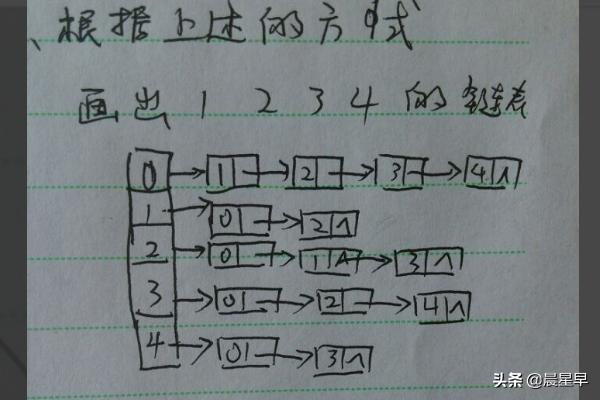 、根据上述的方式
画出 1 2 3 4 的链表
0 1 2 3 4 ∧
1 0 2 ∧
2 0 1 ∧ 3 ∧
3 0 2 4 ∧
4 0 3 ∧
头条 @晨星早